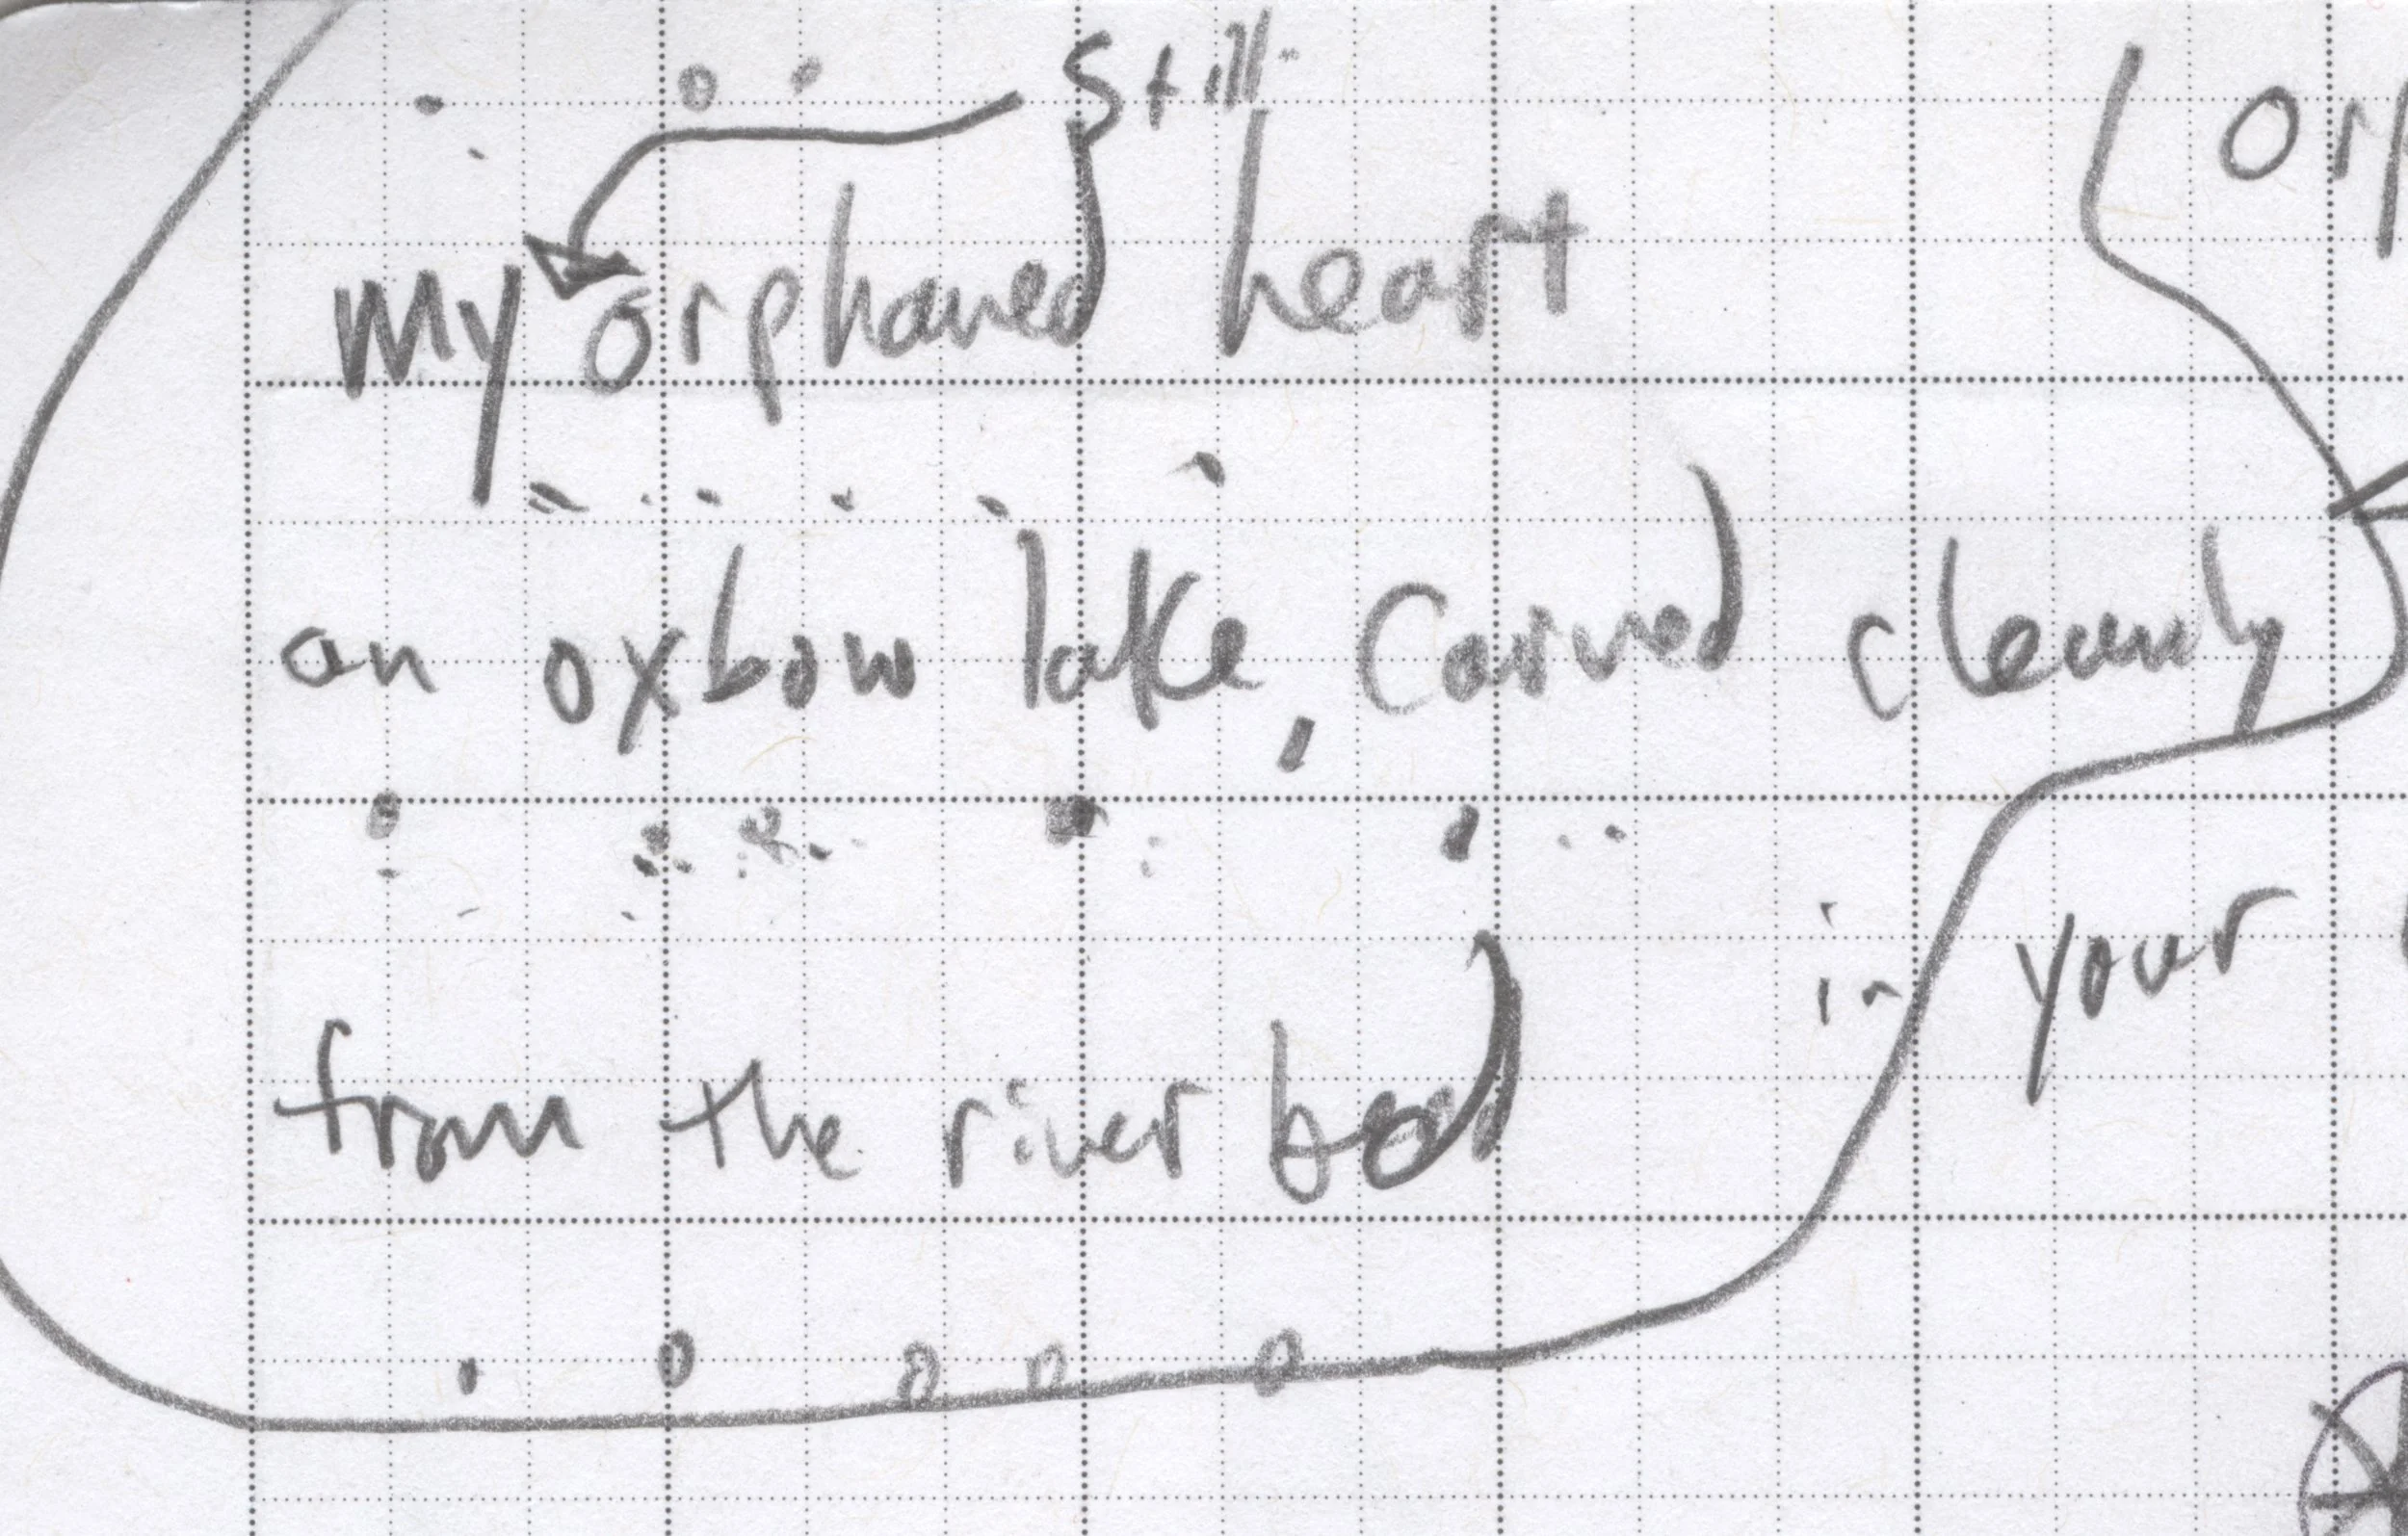 still
orp
my orphaned heart
an oxbow lake, carved cleanly
in your
from the river bed